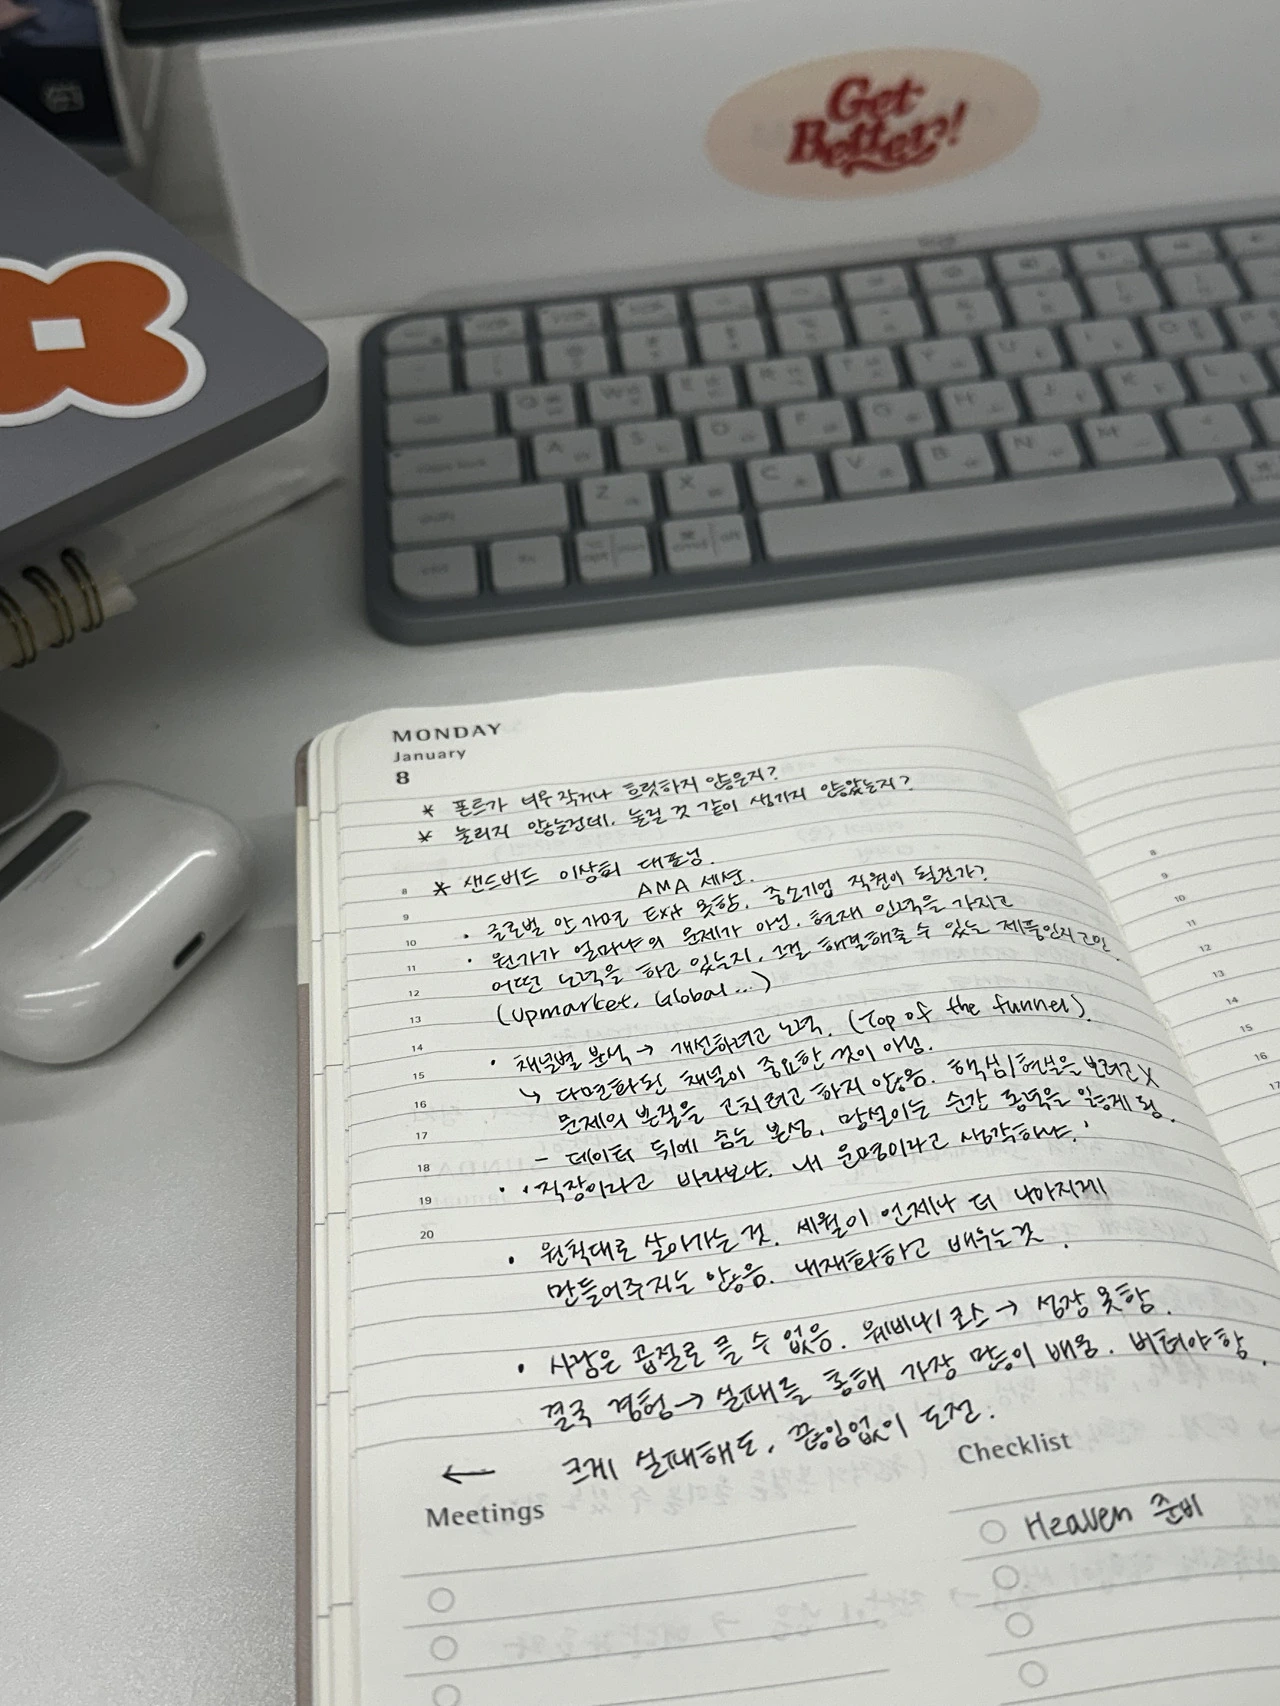 Get
Better!
Q W E R T Y U
A S D F G H J K L
Z X C V B N M
MONDAY
January
8
* 폰트가 너무 작거나 흐릿하지 않은지?
* 눌리지 않는건데, 눌릴 것 같이 생기지 않았는지?
8 * 샌드버드 이상희 대표님.
9 AMA 세션.
10 · 글로벌 안 가면 Exit 못함. 중소기업 직원이 될건가?
11 · 원가가 얼마냐의 문제가 아님. 현재 인력을 가지고
12 어떤 노력을 하고 있는지, 그걸 해결해줄 수 있는 제품인지 고민.
13 (Upmarket, Global...)
14 · 채널별 분석 → 개선하려고 노력. (Top of the funnel).
15 ↳ 다면화된 채널이 중요한 것이 아님.
16 문제의 본질을 고치려고 하지 않음. 핵심/현실을 보려고 X
17 - 데이터 뒤에 숨는 본성. 망설이는 순간 동력을 잃게 됨.
18 · '직장이라고 바라보나, 내 운명이라고 생각하나.'
19
20 · 원칙대로 살아가는 것. 세월이 언제나 더 나아지게
만들어주지는 않음. 내재화하고 배우는 것.
· 사람은 곱절로 클 수 없음. 웨비나/코스 → 성장 못함.
결국 경험 → 실패를 통해 가장 많이 배움. 버텨야 함.
← 크게 실패해도, 끊임없이 도전.
Meetings
Checklist
Heaven 준비
8
9
10
11
12
13
14
15
16
17